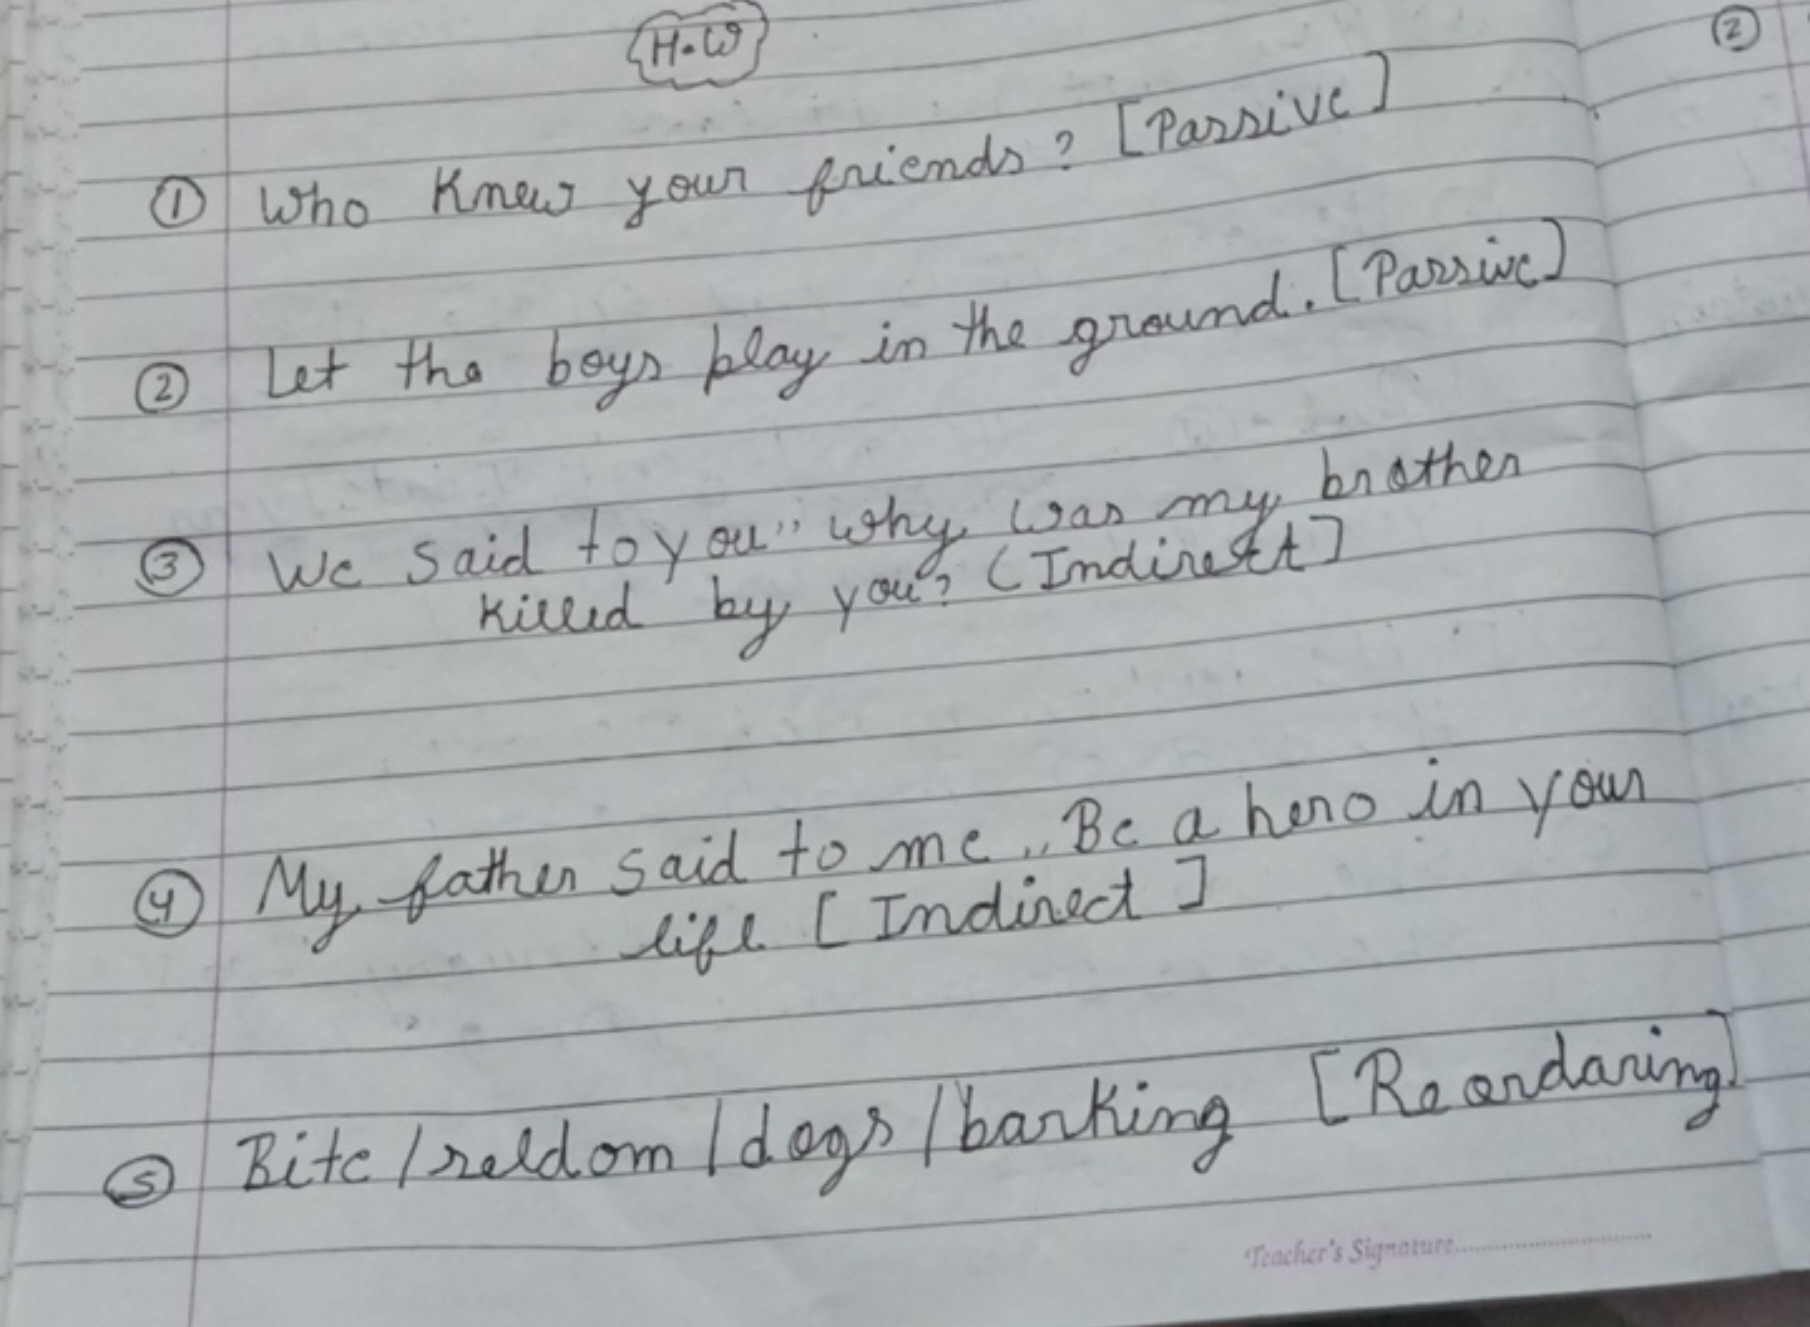 H.W
②
① Who Knew your friends? [Passive]
② Let the boys play in the ground. [Passive]
③ We said to you" why was my brother
killed by you"? (Indirect]
④ My father said to me " Be a hero in your
life [Indirect]
⑤ Bite/seldom/dogs/barking [Reordaring]
Teacher's Signature